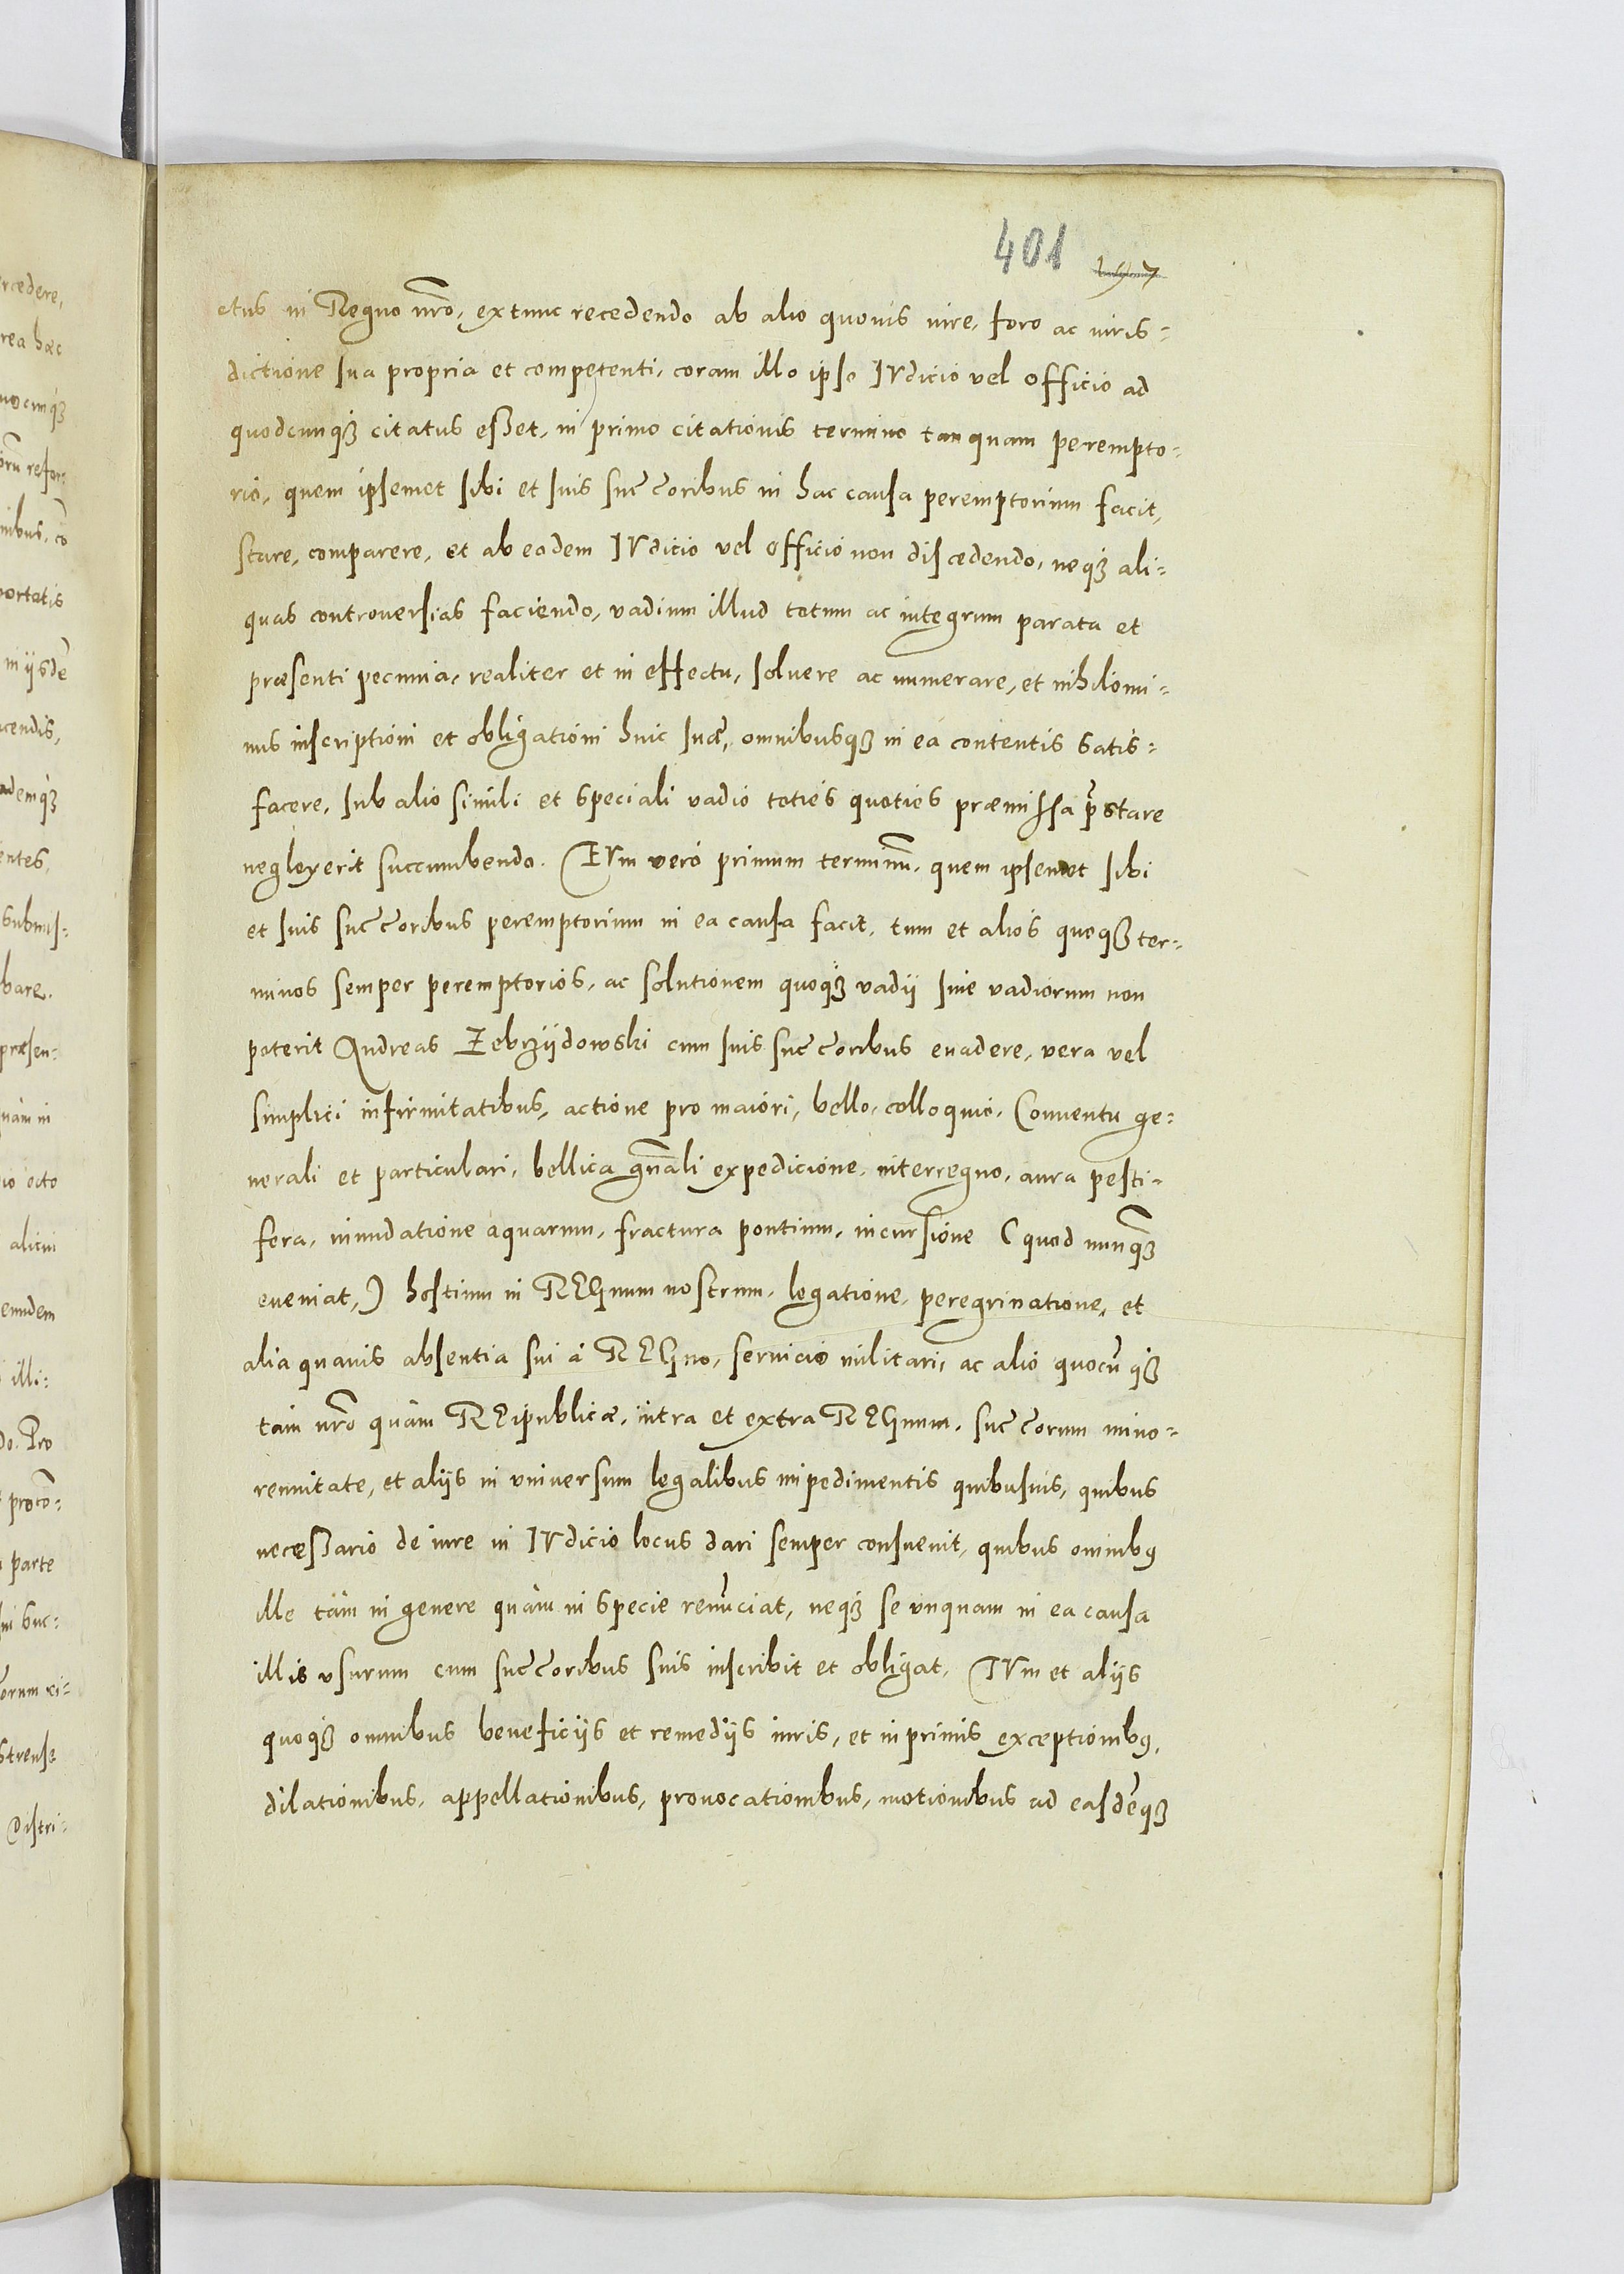 401 197
ctus in Regno nro, extunc recedendo ab alio quouis iure, foro ac iuris=
dictione sua propria et competenti, coram illo ipso IVdicio vel officio ad
quodcunq3 citatus eßet, in primo citationis termino tanquam perempto=
rio, quem ipsemet sibi et suis succoribus in hac causa peremptorium facit,
stare, comparere, et ab eadem IVdicio vel officio non discedendo, neq3 ali=
quas controuersias faciendo, vadium illud totum ac integrum parata et
præsenti pecunia, realiter et in effectu, soluere ac numerare, et nihilomi=
nus inscriptioni et obligationi huic suæ, omnibusq3 in ea contentis satis=
facere, sub alio simili et speciali vadio toties quoties præmissa p̃stare
neglexerit succumbendo. TVm vero primum terminũ, quem ipsemet sibi
et suis succoribus peremptorium in ea causa facit, tum et alios quoq3 ter=
minos semper peremptorios, ac solutionem quoq3 vadij siue vadiorum non
poterit Andreas Zebrzijdowski cum suis succoribus euadere, vera vel
simplici infirmitatibus, actione pro maiori, bello, colloquio, Conuentu ge=
nerali et particulari, bellica gnali expedicione, interregno, aura pesti=
fera, inundatione aquarum, fractura pontium, incursione (quod nunq3
eueniat,) hostium in REGnum nostrum, legatione, peregrinatione, et
alia quauis absentia sui à REGno, seruicio militari, ac alio quocũq3
tam nro quàm REipublicæ, intra et extra REGnum, succorum mino=
rennitate, et alijs in vniuersum legalibus impedimentis quibusuis, quibus
necæßario de iure in IVdicio locus dari semper consueuit, quibus omnibus
ille tàm in genere quàm in specie renũciat, neq3 se vnquam in ea causa
illis vsurum cum succoribus suis inscribit et obligat. TVm et alijs
quoq3 omnibus beneficijs et remedijs iuris, et in primis exceptionibus,
dilationibus, appellationibus, prouocationibus, motionibus ad easdẽq3